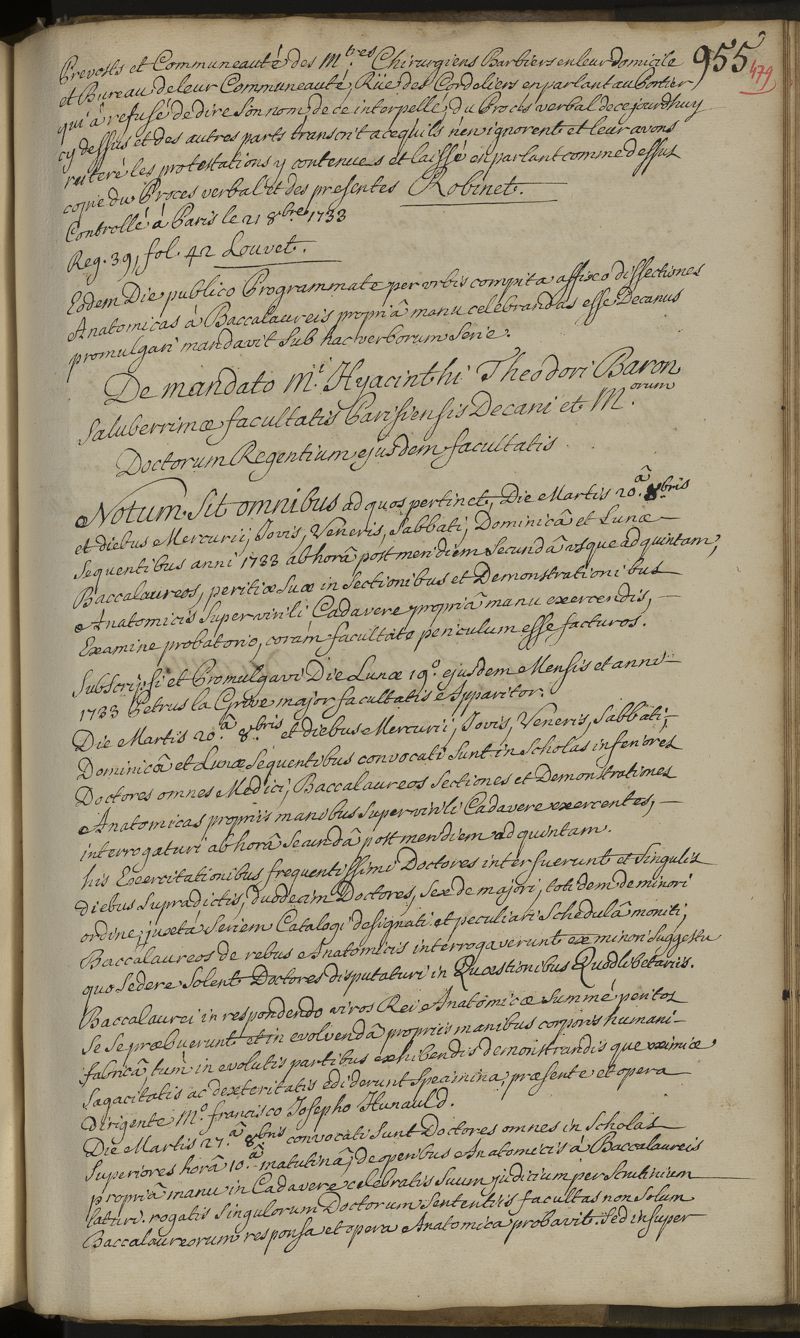 955
479
Prevosts et Communeauté des M.tres Chirurgiens Barbiers en leur domicile
et Bureau de leur Communeauté, Rüe des Cordeliers en parlant au Portier
qui a refusé de dire son nom, de ce interpellé, du Procès verbal de ce jourdhuy
cy dessus et des autres parts transcrit à ce qu'ils n'en ignorent et leur avons
reiteré les protestations y contenues et laissé en parlant comme dessus
copie du Proces verbal et des presentes Robinet.
Controllé à Paris le 21 8bre 1733
Reg. 39, fol. 42 Louvet.
Eodem Die publico Programmate per urbis compita affixo dissectiones
Anatomicas à Baccalaureis propriâ manu celebrandas esse Decanus
promulgari mandavit sub hac verborum serie.
De mandato M.i Hyacinthi Theodori Baron
Saluberrimæ facultatis Parisiensis Decani et M.orum
Doctorum Regentium ejusdem facultatis
Notum sit omnibus ad quos pertinet, Die Martis 20.â 8bris
et diebus Mercurii, Jovis, Veneris, Sabbati, Dominicâ et Lunæ
sequentibus anni 1733 ab horâ post meridiem secundâ usque ad quintam,
Baccalaureos, peritiæ suæ in sectionibus et Demonstrationibus
Anatomicis super virili Cadavere propriâ manu exercendis,
Examine probatorio, coram facultate periculum esse facturos.
Subscripsi et Promulgavi Die Lunæ 19.º ejusdem Mensis et anni
1733 Petrus la Greve major facultatis Apparitor.
Die Martis 20.â 8bris et diebus Mercurii, Jovis, Veneris, Sabbati,
Dominicâ et Lunæ sequentibus convocati sunt in Scholas inferiores
Doctores omnes Medici, Baccalaureos sectiones et Demonstrationes
Anatomicas propriis manibus super virili Cadavere exercentes,
interrogaturi ab horâ secundâ post meridiem ad quintam.
his Exercitationibus frequentissimi Doctores interfuerunt et singulis
diebus supradictis, duodecim Doctores, sex de majori, totidem de minori
ordine, juxtà seriem Catalogi designati et peculiari schedulâ moniti,
Baccalaureos de rebus Anatomicis interrogaverunt ex minori suggestu
quo sedere solent Doctores disputaturi in Quæstionibus Quodlibetariis.
Baccalaurei in respondendo viros Rei Anatomicæ summé peritos
se se præbuerunt et in evolvendâ propriis manibus corporis humani
fabricâ tum in evolutis partibus exhibendis demonstrandisque eximiæ
sagacitatis ac dexteritatis ediderunt specimina, præsente et opera
dirigente M.º francisco Josepho Hunauld.
Die Martis 27.â 8bris convocati sunt Doctores omnes in Scholas
superiores horâ 10.â matutinâ, de operibus Anatomicis à Baccalaureis
propriâ manu in Cadavere celebratis suum judicium per scrutinium
laturi. rogatis singulorum Doctorum sententiis facultas non solum
Baccalaureorum responsa et opera Anatomica probavit. sed insuper